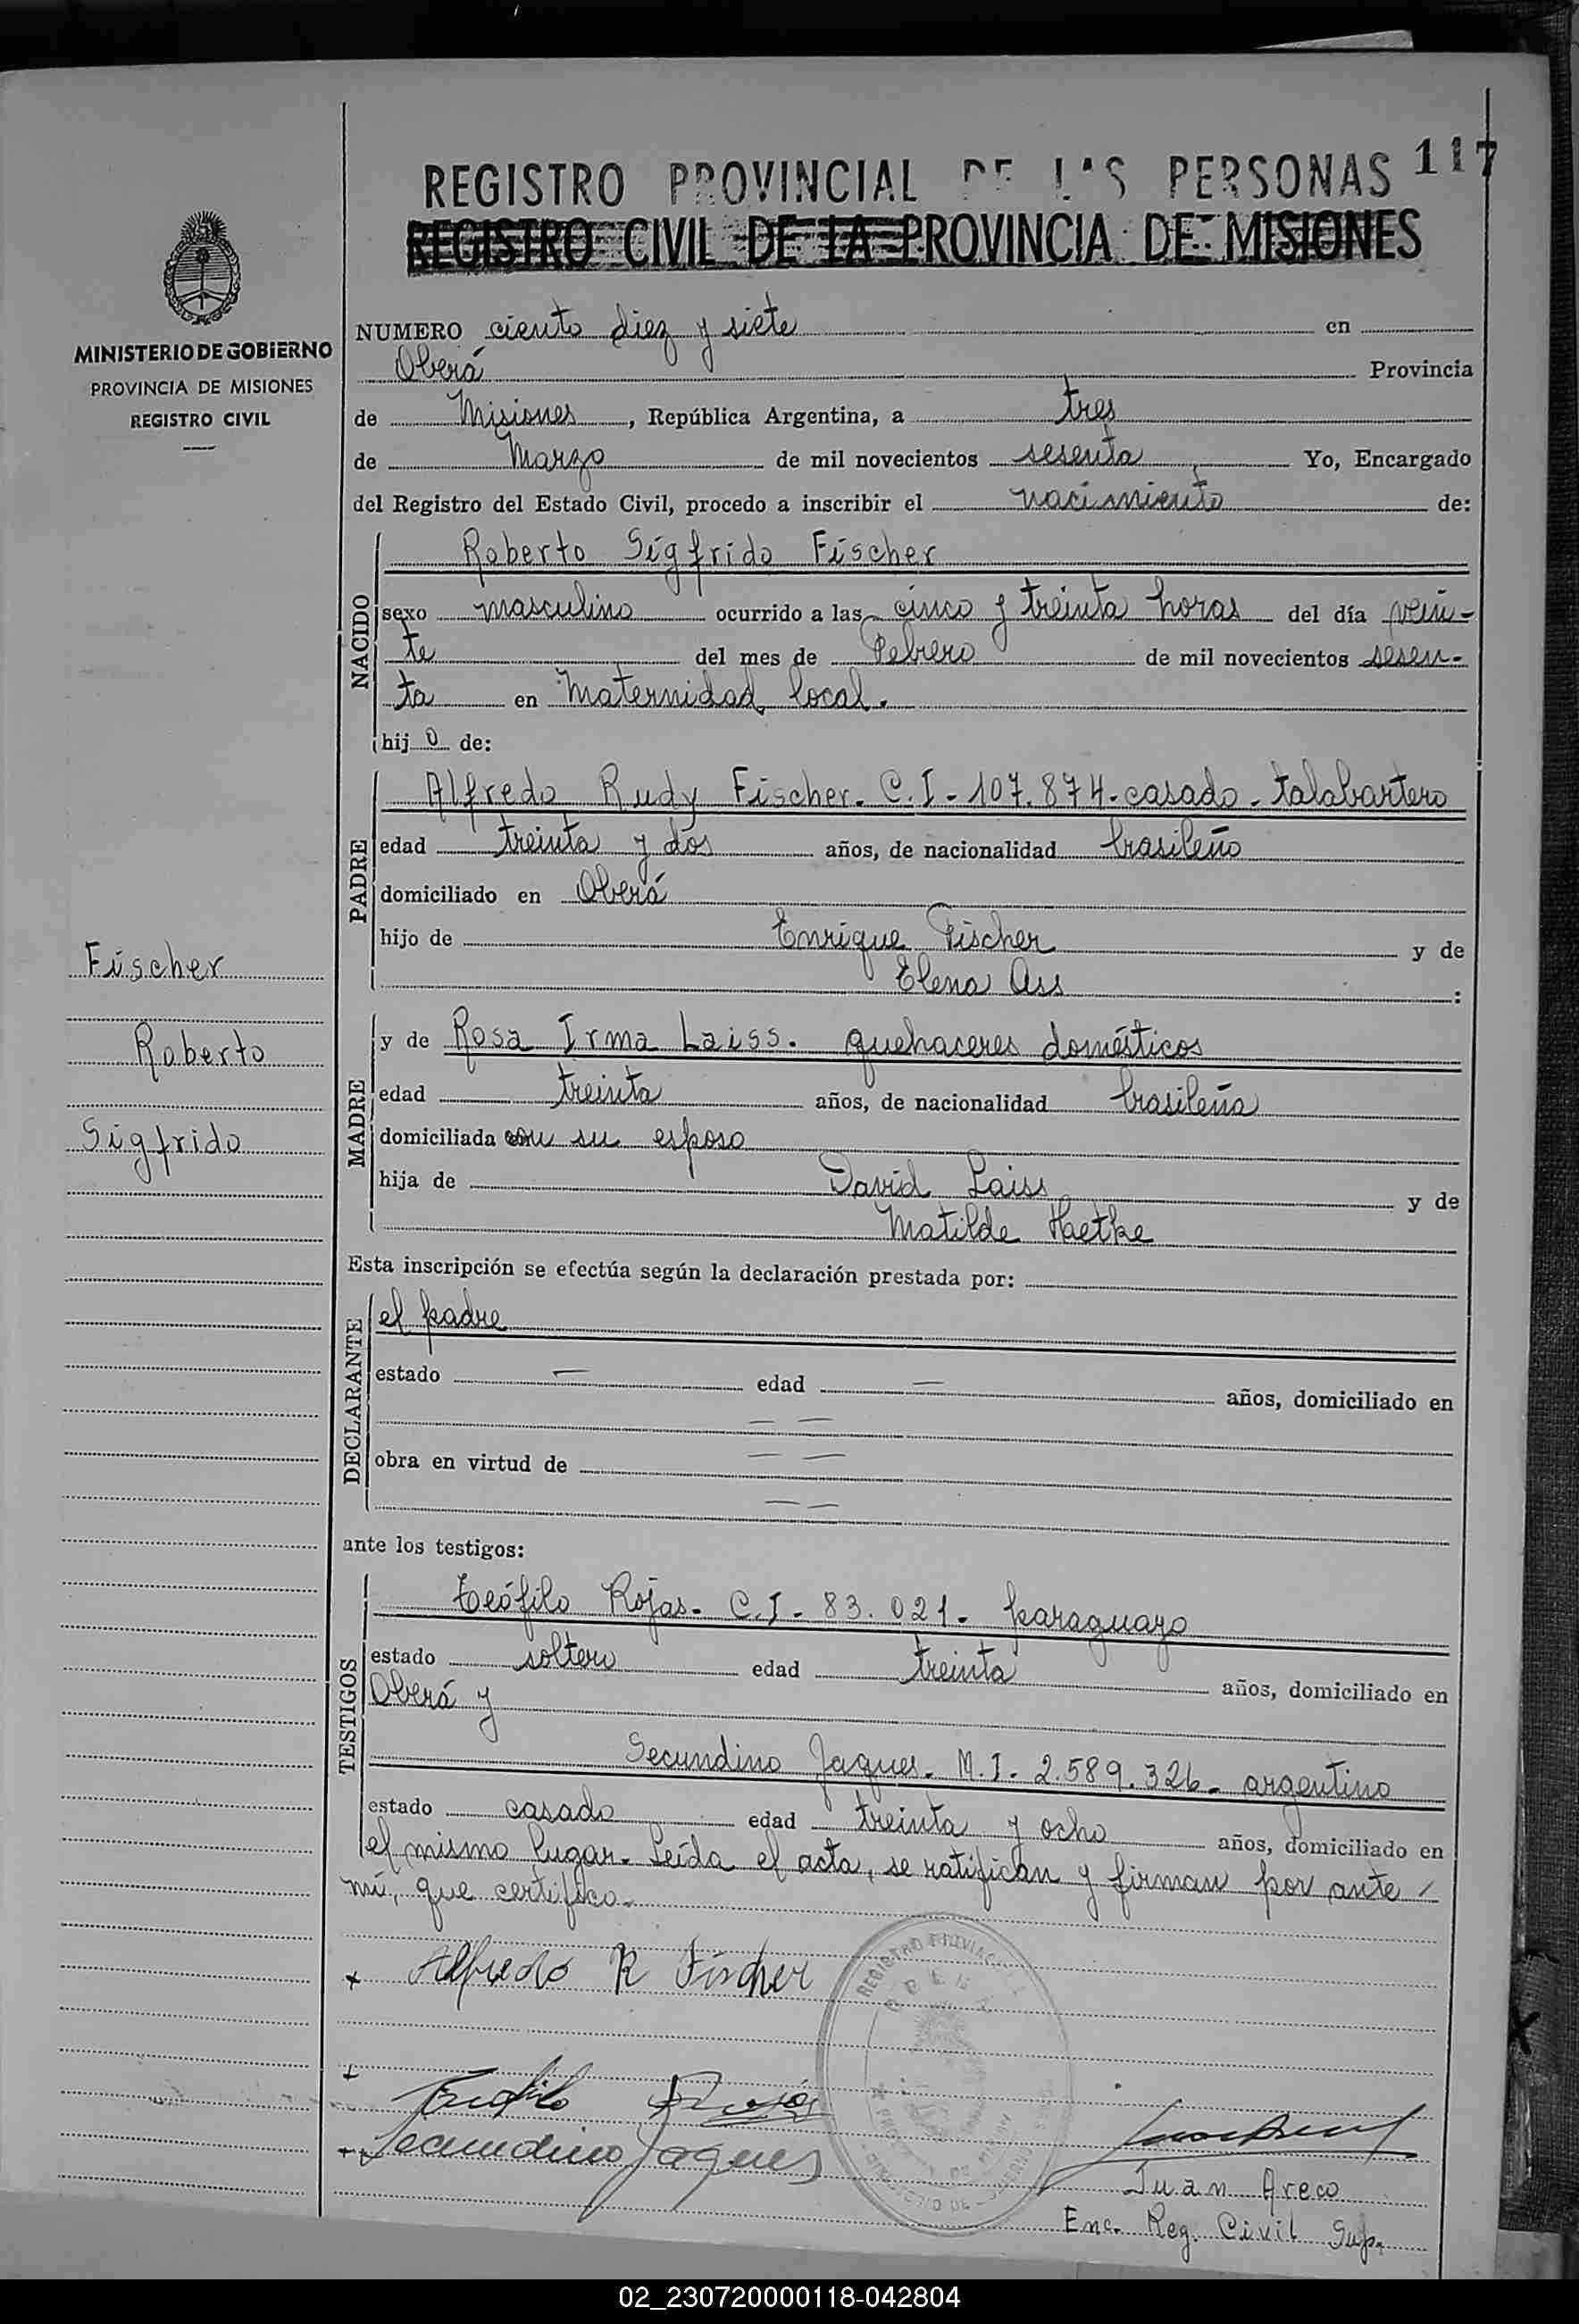 REGISTRO PROVINCIAL DE LAS PERSONAS 117
REGISTRO CIVIL DE LA PROVINCIA DE MISIONES
MINISTERIO DE GOBIERNO
PROVINCIA DE MISIONES
REGISTRO CIVIL
NUMERO ciento diez y siete en
Oberá Provincia
de Misiones, República Argentina, a tres
de Marzo de mil novecientos sesenta Yo, Encargado
del Registro del Estado Civil, procedo a inscribir el nacimiento de:
NACIDO
Roberto Sigfrido Fischer
sexo masculino ocurrido a las cinco y treinta horas del día vein-
te del mes de Febrero de mil novecientos sesen-
ta en Maternidad local.
hij o de:
PADRE
Alfredo Rudy Fischer. C.I - 107.874 - casado - talabartero
edad treinta y dos años, de nacionalidad brasileño
domiciliado en Oberá
hijo de Enrique Fischer y de
Elena Ass :
MADRE
y de Rosa Irma Laiss. quehaceres domésticos
edad treinta años, de nacionalidad brasileña
domiciliada con su esposo
hija de David Laiss y de
Matilde Haetke
Esta inscripción se efectúa según la declaración prestada por:
DECLARANTE
el padre
estado — edad — años, domiciliado en
— —
obra en virtud de — —
— —
ante los testigos:
TESTIGOS
Teófilo Rojas - C.I - 83.021 - paraguayo
estado soltero edad treinta años, domiciliado en
Oberá y
Secundino Jaques - M.I - 2.589.326 - argentino
estado casado edad treinta y ocho años, domiciliado en
el mismo lugar. Leída el acta, se ratifican y firman por ante
mí, que certifico.
Fischer
Roberto
Sigfrido
Alfredo R Fischer
Teofilo Rojas
Secundino Jaques
REGISTRO PROVINCIAL
Juan Areco
Enc. Reg. Civil Sup.
02_230720000118-042804